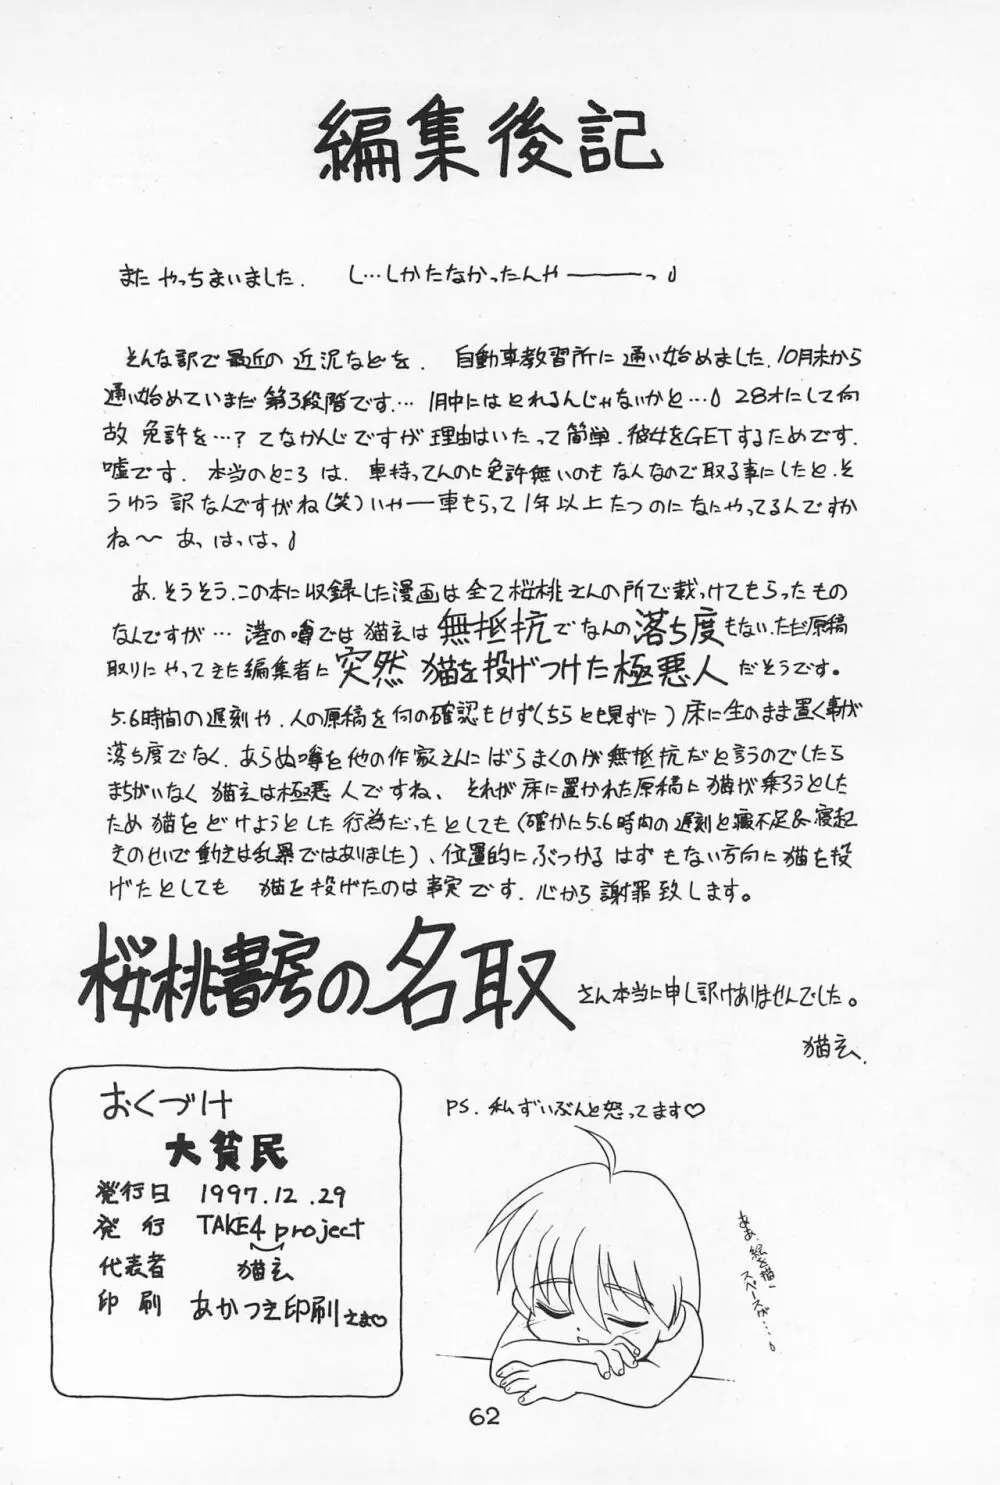 編集後記
またやっちまいました. し…しかたなかったんやーーーっ♪
そんな訳で最近の近況などを. 自動車教習所に通い始めました. 10月末から
通い始めていまだ第3段階です.… 1月中にはとれるんじゃないかと…♪ 28才にして何
故免許を…? てなかんじですが理由はいたって簡単. 彼女をGETするためです.
嘘です. 本当のところは、車持ってんのに免許無いのもなんなので取る事にしたと. そ
うゆう訳なんですがね(笑)いやー車もらって1年以上たつのになにやってるんですか
ね〜 あっはっはっ♪
あ、そうそう、この本に収録した漫画は全て桜桃さんの所で載っけてもらったもの
なんですが… 港の噂では猫玄は無抵抗でなんの落ち度もない、ただ原稿
取りにやってきた編集者に突然猫を投げつけた極悪人だそうです。
5.6時間の遅刻や、人の原稿を何の確認もせず(ちらとも見ずに)床に生のまま置く事が
落ち度でなく、あらぬ噂を他の作家さんにばらまくのが無抵抗だと言うのでしたら
まちがいなく猫玄は極悪人ですね、それが床に置かれた原稿に猫が乗ろうとした
ため猫をどけようとした行為だったとしても(確かに5.6時間の遅刻と寝不足&寝起
きのせいで動きは乱暴ではありました)、位置的にぶつかるはずもない方向に猫を投
げたとしても 猫を投げたのは事実です. 心から謝罪致します。
桜桃書房の名取さん本当に申し訳ありませんでした。
猫玄.
PS. 私ずいぶんと怒ってます♡
おくづけ
大貧民
発行日 1997.12.29
発行 TAKE4 project
代表者 猫玄
印刷 あかつき印刷さま♡
ああ、絵を描く
スペースが…♪
62